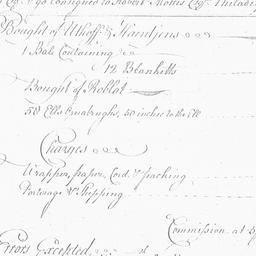 go consigned to Robert Morris Esq. Philadel
Bought of Uthoff & Handjens
1 Bale Containing
12 Blanketts
Bought of Roblot
50 Ells Osnabrughs, 50 inches to the Ell
Charges
Wrapper, paper, Cord & packing
Porterage & Shipping
Commission at
Errors Excepted